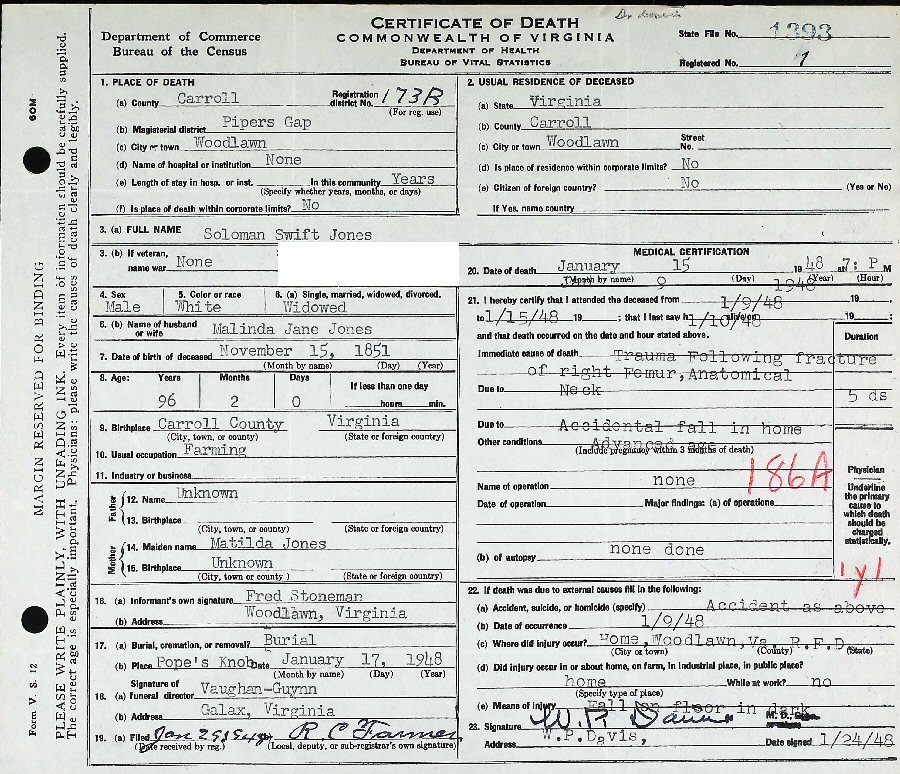 Dr Davis
CERTIFICATE OF DEATH
COMMONWEALTH OF VIRGINIA
DEPARTMENT OF HEALTH
BUREAU OF VITAL STATISTICS
Department of Commerce
Bureau of the Census
State File No. 1393
Registered No. 1
1. PLACE OF DEATH
(a) County Carroll Registration district No. 173B
(For reg. use)
(b) Magisterial district Pipers Gap
(c) City or town Woodlawn
(d) Name of hospital or institution None
(e) Length of stay in hosp. or inst. In this community Years
(Specify whether years, months, or days)
(f) Is place of death within corporate limits? No
2. USUAL RESIDENCE OF DECEASED
(a) State Virginia
(b) County Carroll
(c) City or town Woodlawn Street No.
(d) Is place of residence within corporate limits? No
(e) Citizen of foreign country? No (Yes or No)
If Yes, name country
3. (a) FULL NAME Soloman Swift Jones
3. (b) If veteran, name war None
4. Sex Male
5. Color or race White
6. (a) Single, married, widowed, divorced. Widowed
6. (b) Name of husband or wife Malinda Jane Jones
7. Date of birth of deceased November 15, 1851
(Month by name) (Day) (Year)
8. Age: Years Months Days If less than one day
96 2 0 hours min.
9. Birthplace Carroll County Virginia
(City, town, or county) (State or foreign country)
10. Usual occupation Farming
11. Industry or business
Father
12. Name Unknown
13. Birthplace
(City, town, or county) (State or foreign country)
Mother
14. Maiden name Matilda Jones
15. Birthplace Unknown
(City, town, or county ) (State or foreign country)
16. (a) Informant's own signature Fred Stoneman
(b) Address Woodlawn, Virginia
17. (a) Burial, cremation, or removal? Burial
(b) Place Pope's Knob Date January 17, 1948
(Month by name) (Day) (Year)
18. (a) Signature of funeral director Vaughan-Guynn
(b) Address Galax, Virginia
19. (a) Filed Jan 29, 1948 R. C. Farmer
(Date received by reg.) (Local, deputy, or sub-registrar's own signature)
MEDICAL CERTIFICATION
20. Date of death January 15 1948 at 7: P M
(Month by name) (Day) (Year) (Hour)
9 1948
21. I hereby certify that I attended the deceased from 1/9/48 19
to 1/15/48 19 ; that I last saw h 1/10/48 alive on 19 ;
and that death occurred on the date and hour stated above. Duration
Immediate cause of death Trauma Following fracture
of right Femur, Anatomical
Due to Neck 5 ds
Due to Accidental fall in home
Other conditions Advanced age
(Include pregnancy within 3 months of death)
Name of operation none
186A
Date of operation Major findings: (a) of operations
(b) of autopsy none done
Physician
Underline the primary cause to which death should be charged statistically.
1y1
22. If death was due to external causes fill in the following:
(a) Accident, suicide, or homicide (specify) Accident as above
(b) Date of occurrence 1/9/48
(c) Where did injury occur? Home, Woodlawn, Va. R.F.D.
(City or town) (County) (State)
(d) Did injury occur in or about home, on farm, in industrial place, in public place?
home While at work? no
(Specify type of place)
(e) Means of injury Fall on floor in dark
23. Signature W. P. Davis M. D.
Address W.P.Davis, Date signed 1/24/48
60M
MARGIN RESERVED FOR BINDING
PLEASE WRITE PLAINLY, WITH UNFADING INK. Every item of information should be carefully supplied.
The correct age is especially important. Physicians: please write the causes of death clearly and legibly.
Form V. S. 12